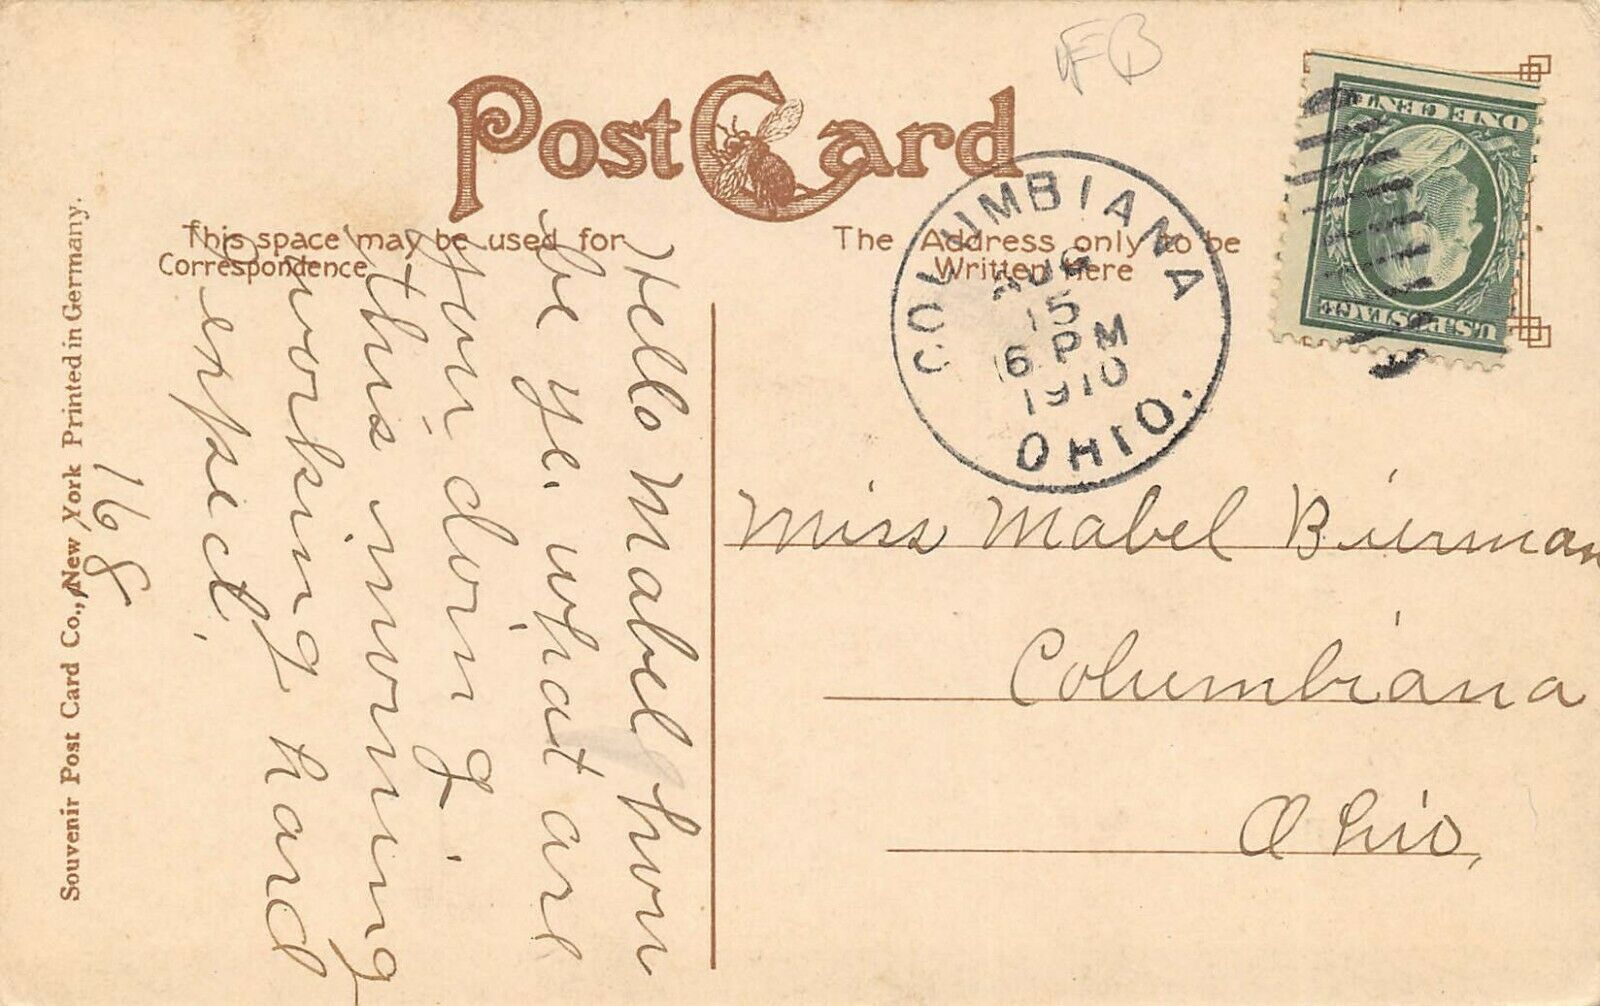 Post Card
This space may be used for
Correspondence
The Address only to be
Written Here
COLUMBIANA
AUG
15
6 PM
1910
OHIO.
U.S. POSTAGE
ONE CENT
Hello Mabel how
be ye. what are
you doing.
this morning
working hard
I expect.
Miss Mabel Bierman
Columbiana
Ohio,
168
Souvenir Post Card Co., New York Printed in Germany.